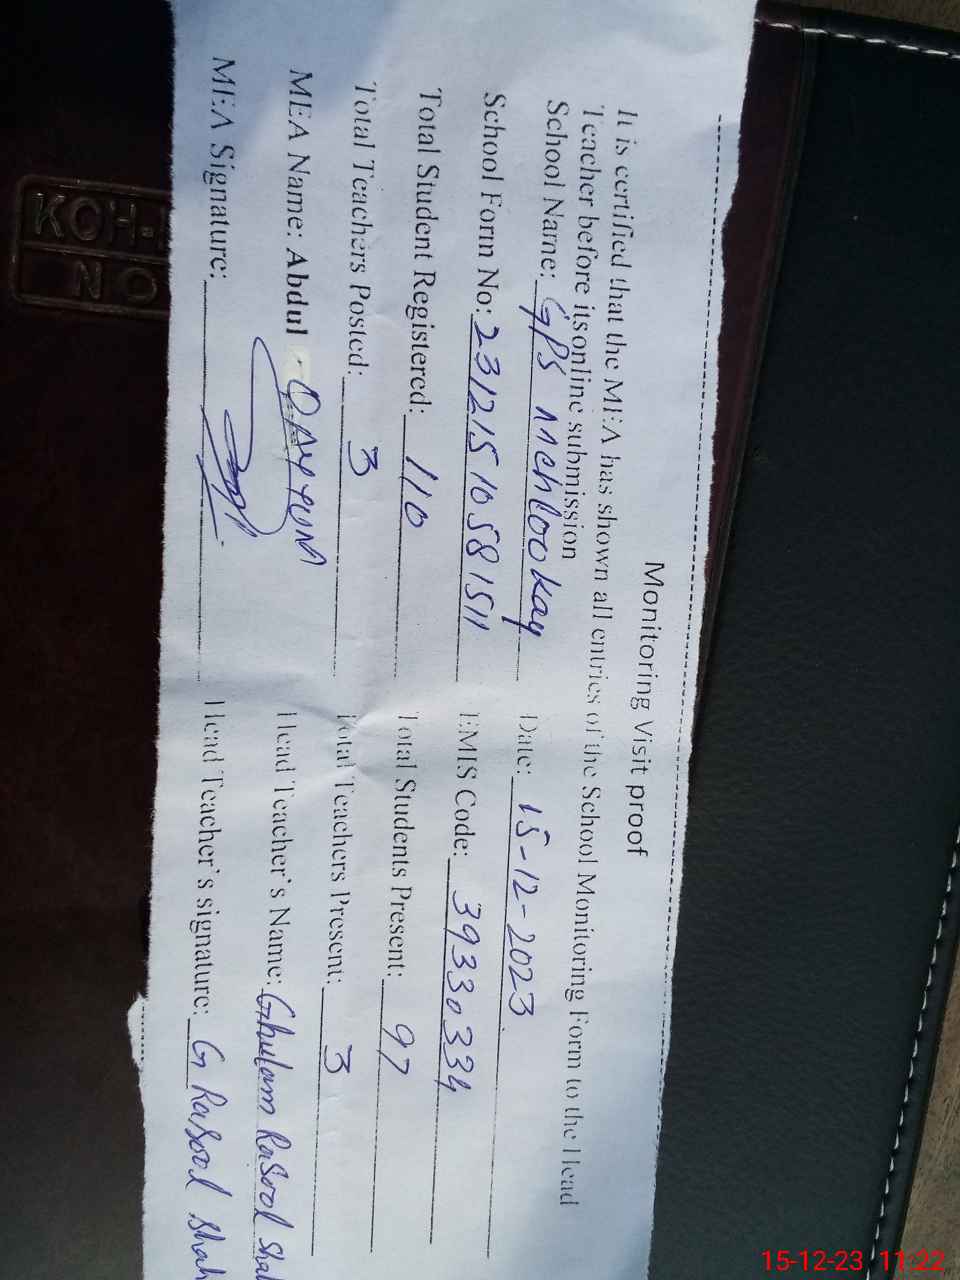 Monitoring Visit proof
It is certified that the MEA has shown all entries of the School Monitoring Form to the Head
Teacher before its online submission
School Name: GPS Mehlookay Date: 15-12-2023
School Form No: 23121510581511 EMIS Code: 39330334
Total Student Registered: 110 Total Students Present: 97
Total Teachers Posted: 3 Total Teachers Present: 3
MEA Name: Abdul QAYYUM Head Teacher's Name: Ghulam Rasool Shah
MEA Signature: Head Teacher's signature: G Rasool Shah
KOH-
NO
15-12-23 11:22